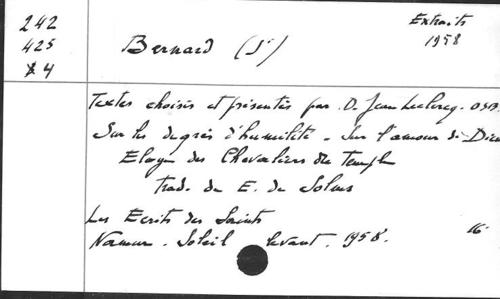 242
425
X 4
Bernard (St)
Extraits
1958
Textes choisis et présentés par D. Jean Leclercq. OSB.
Sur les degrés d'humilité - Sur l'amour de Dieu
Eloge des Chevaliers du Temple
trad. de E. de Solms
Les Ecrits des Saints
Namur. Soleil levant. 1958.
16